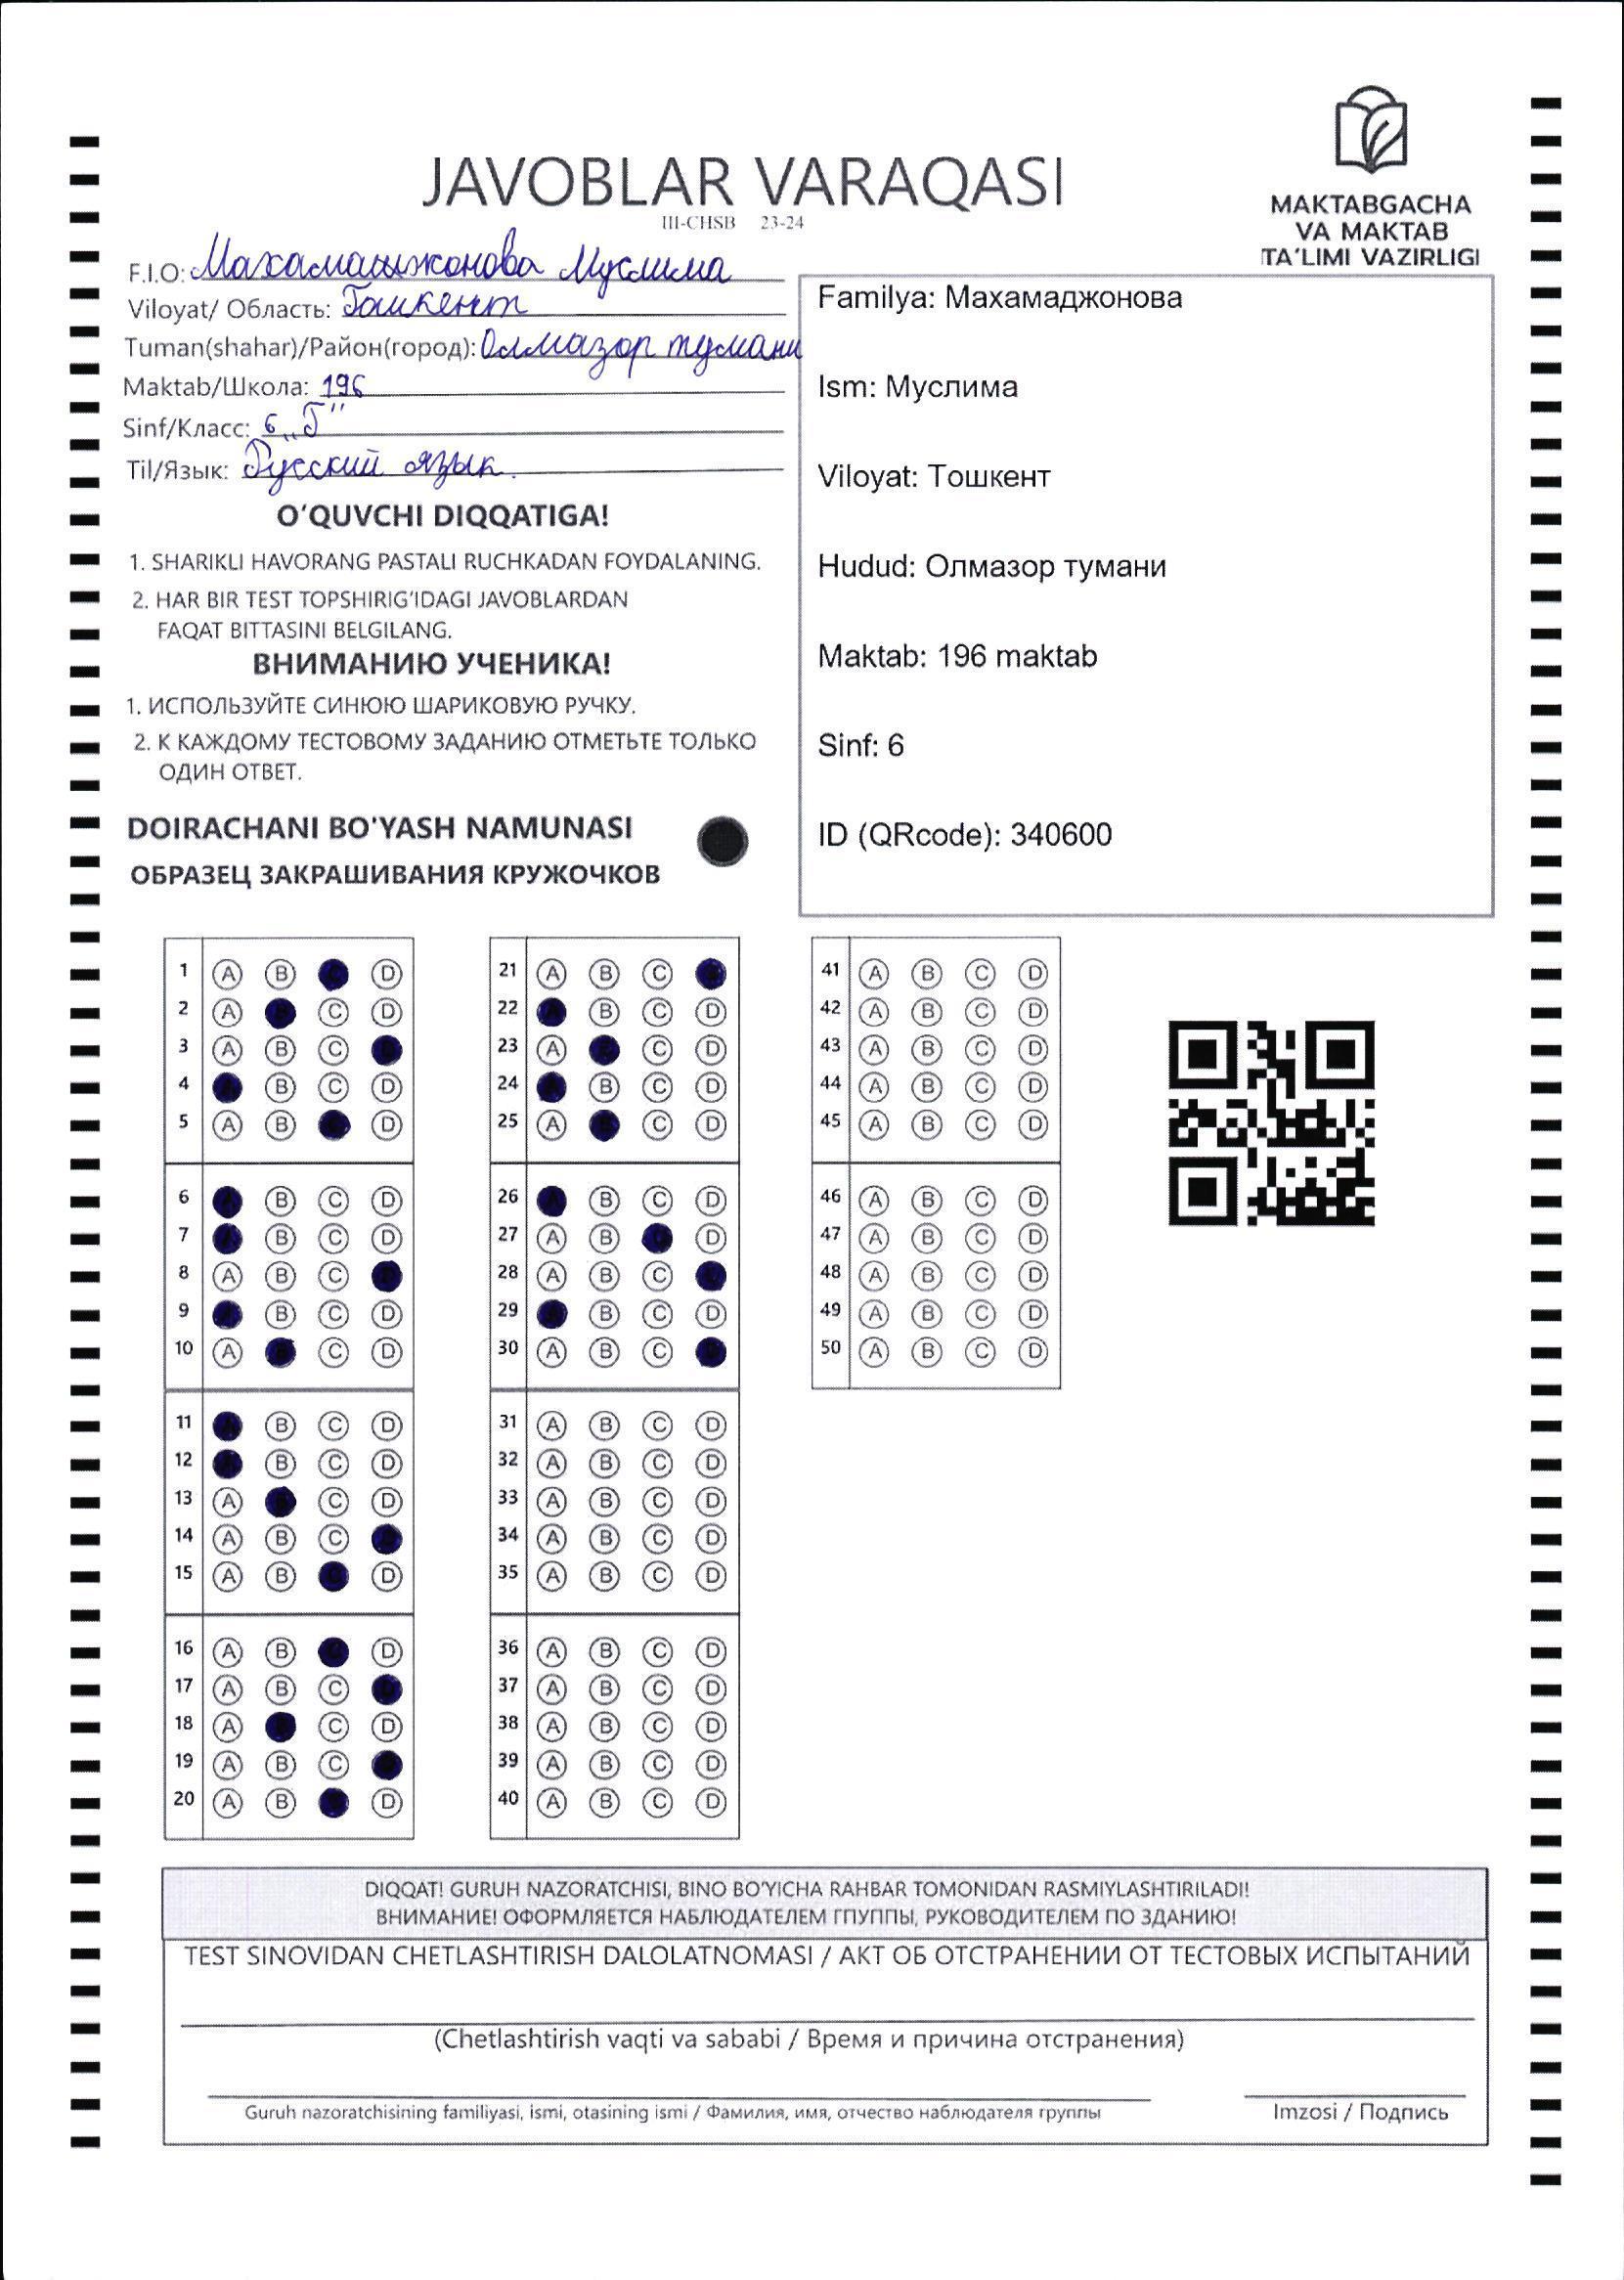 JAVOBLAR VARAQASI
III-CHSB 23-24
MAKTABGACHA
VA MAKTAB
TA'LIMI VAZIRLIGI
F.I.O: Махамаджонова Муслима
Viloyat/ Область: Ташкент
Tuman(shahar)/Район(город): Олмазор тумани
Maktab/Школа: 196
Sinf/Класс: 6 „Г"
Til/Язык: Русский язык.
O'QUVCHI DIQQATIGA!
1. SHARIKLI HAVORANG PASTALI RUCHKADAN FOYDALANING.
2. HAR BIR TEST TOPSHIRIG'IDAGI JAVOBLARDAN
FAQAT BITTASINI BELGILANG.
ВНИМАНИЮ УЧЕНИКА!
1. ИСПОЛЬЗУЙТЕ СИНЮЮ ШАРИКОВУЮ РУЧКУ.
2. К КАЖДОМУ ТЕСТОВОМУ ЗАДАНИЮ ОТМЕТЬТЕ ТОЛЬКО
ОДИН ОТВЕТ.
DOIRACHANI BO'YASH NAMUNASI
ОБРАЗЕЦ ЗАКРАШИВАНИЯ КРУЖОЧКОВ
Familya: Махамаджонова
Ism: Муслима
Viloyat: Тошкент
Hudud: Олмазор тумани
Maktab: 196 maktab
Sinf: 6
ID (QRcode): 340600
1 A B D
2 A C D
3 A B C
4 B C D
5 A B D
6 B C D
7 B C D
8 A B C
9 B C D
10 A C D
11 B C D
12 B C D
13 A C D
14 A B C
15 A B D
16 A B D
17 A B C
18 A C D
19 A B C
20 A B D
21 A B C
22 B C D
23 A C D
24 B C D
25 A C D
26 B C D
27 A B D
28 A B C
29 B C D
30 A B C
31 A B C D
32 A B C D
33 A B C D
34 A B C D
35 A B C D
36 A B C D
37 A B C D
38 A B C D
39 A B C D
40 A B C D
41 A B C D
42 A B C D
43 A B C D
44 A B C D
45 A B C D
46 A B C D
47 A B C D
48 A B C D
49 A B C D
50 A B C D
DIQQAT! GURUH NAZORATCHISI, BINO BO'YICHA RAHBAR TOMONIDAN RASMIYLASHTIRILADI!
ВНИМАНИЕ! ОФОРМЛЯЕТСЯ НАБЛЮДАТЕЛЕМ ГПУППЫ, РУКОВОДИТЕЛЕМ ПО ЗДАНИЮ!
TEST SINOVIDAN CHETLASHTIRISH DALOLATNOMASI / АКТ ОБ ОТСТРАНЕНИИ ОТ ТЕСТОВЫХ ИСПЫТАНИЙ
(Chetlashtirish vaqti va sababi / Время и причина отстранения)
Guruh nazoratchisining familiyasi, ismi, otasining ismi / Фамилия, имя, отчество наблюдателя группы
Imzosi / Подпись